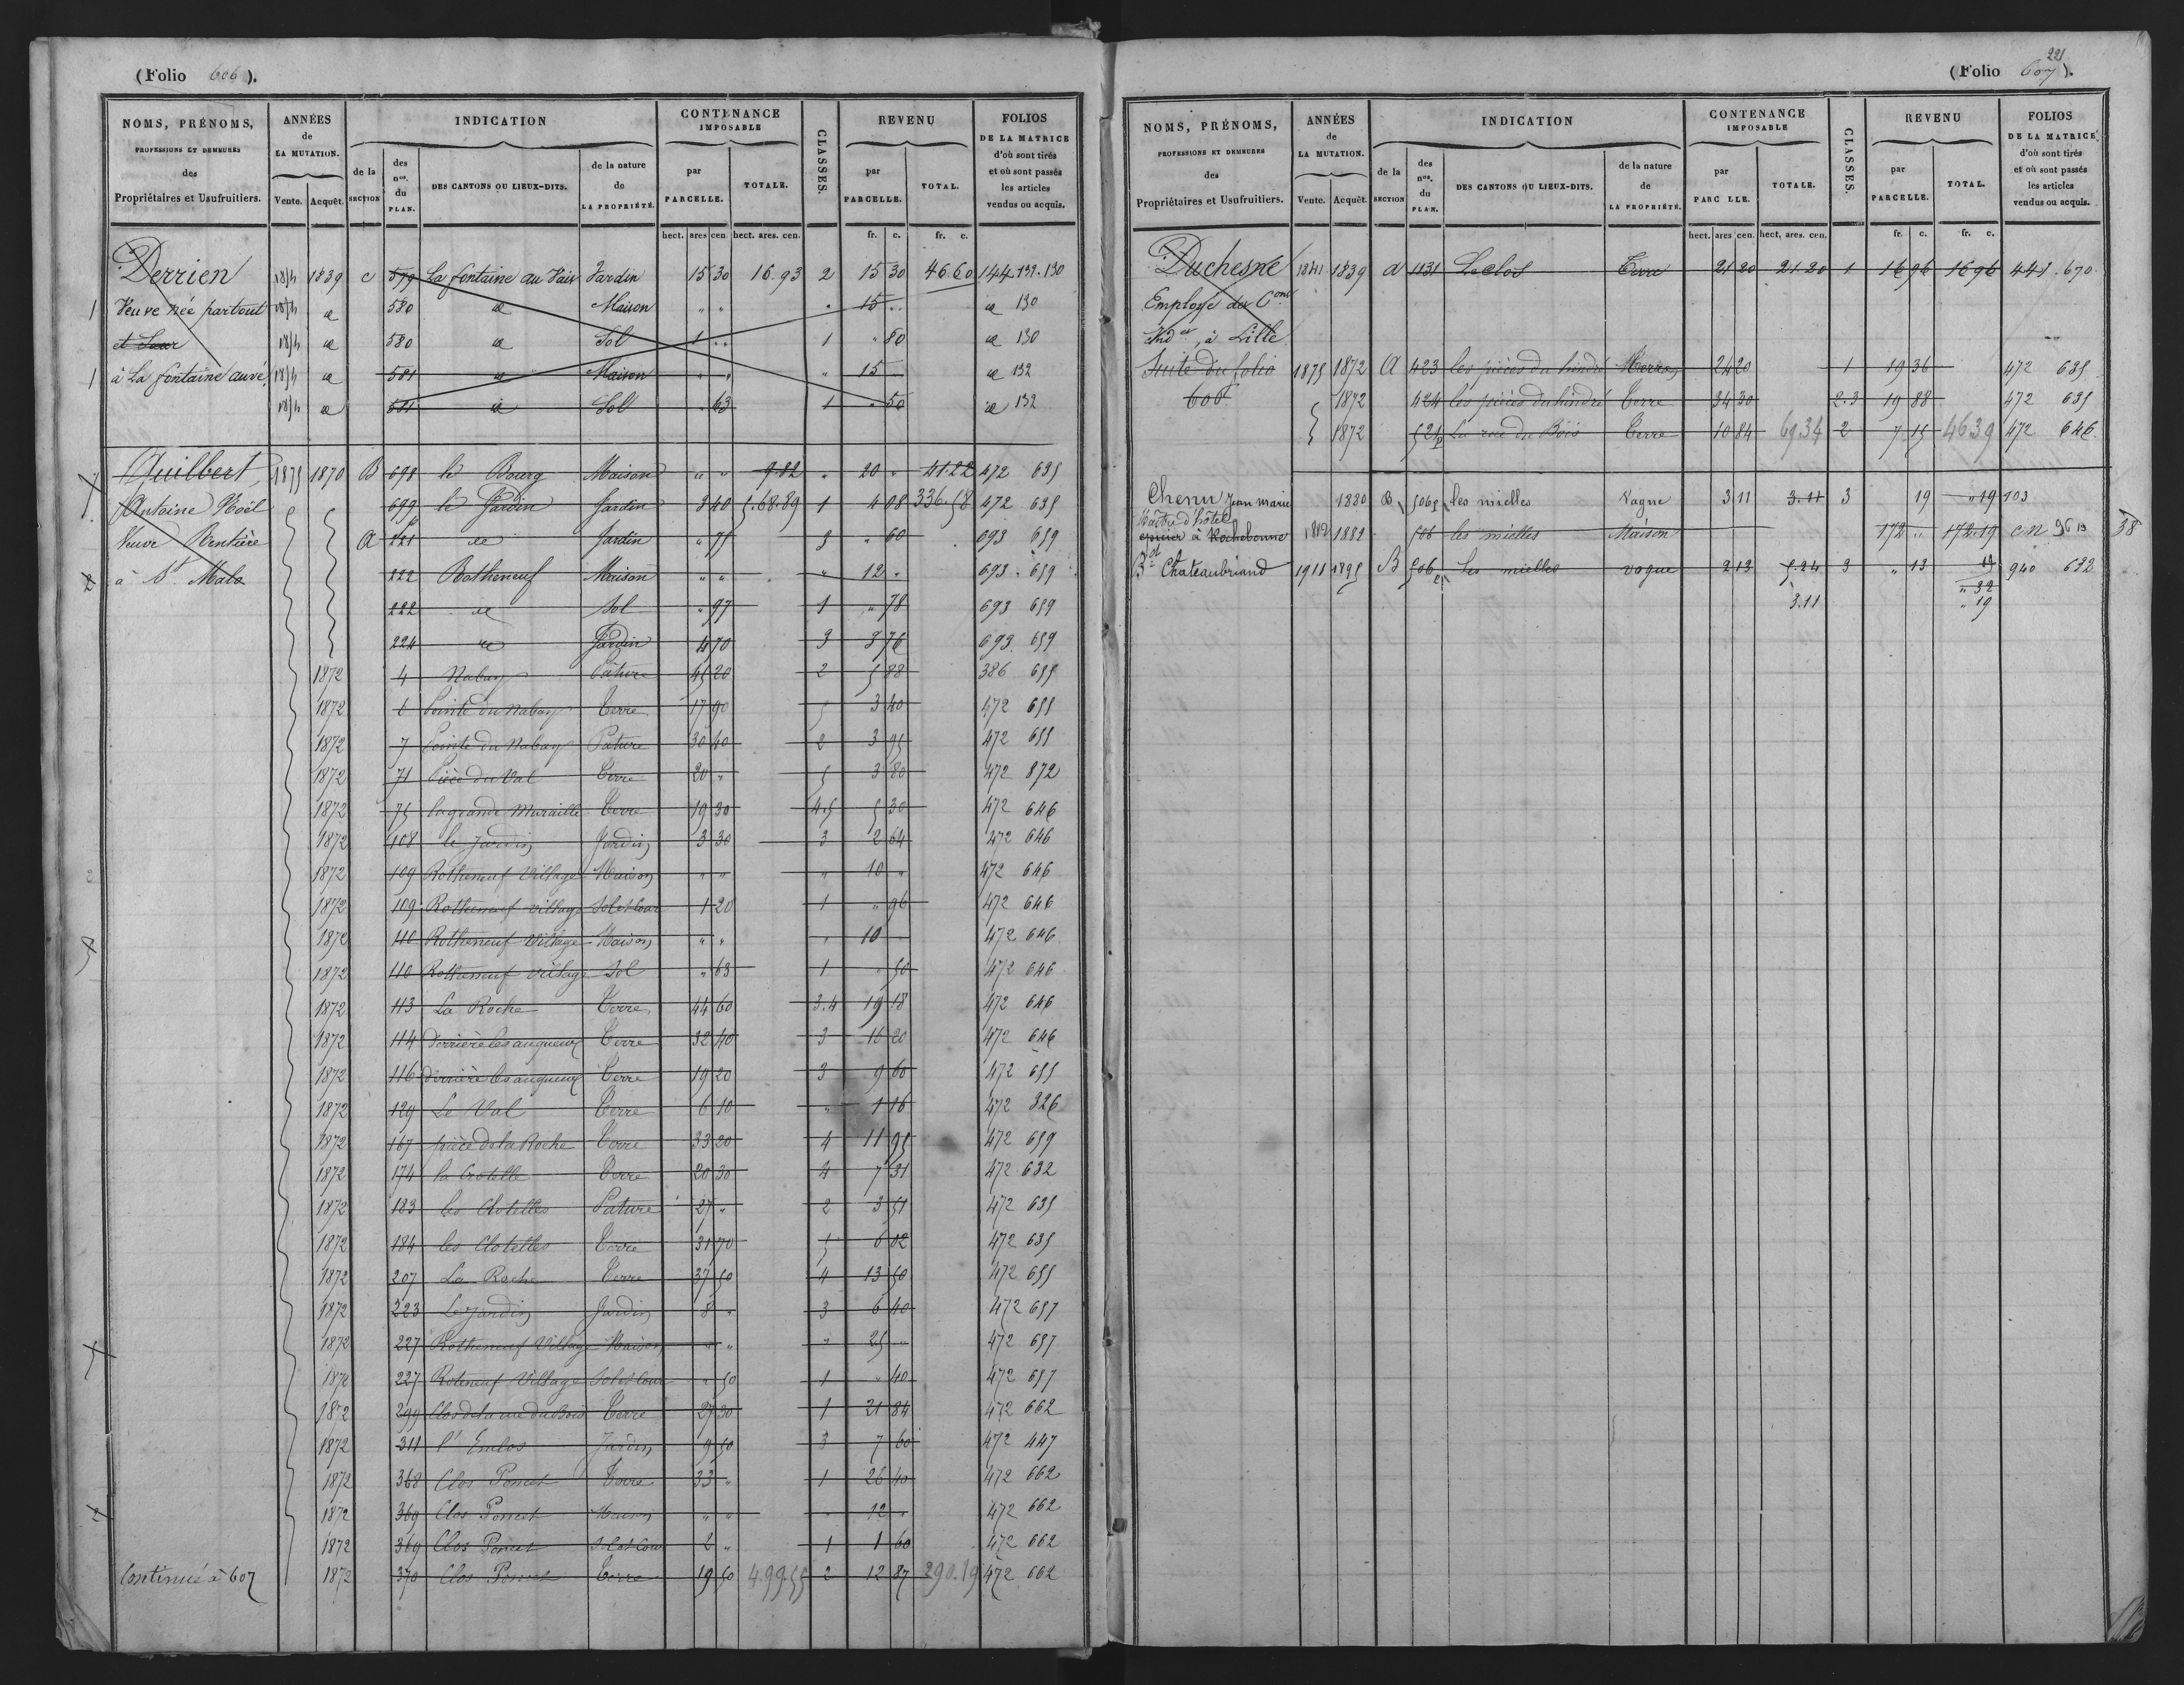 (Folio 606).
NOMS, PRÉNOMS,
PROFESSIONS ET DEMEURES
des
Propriétaires et Usufruitiers.
ANNÉES
de
LA MUTATION.
Vente. Acquêt.
INDICATION
de la
SECTION
des
nos.
du
PLAN.
DES CANTONS OU LIEUX-DITS.
de la nature
de
LA PROPRIÉTÉ.
CONTENANCE
IMPOSABLE
par
PARCELLE.
TOTALE.
CLASSES.
REVENU
par
PARCELLE.
TOTAL.
FOLIOS
DE LA MATRICE
d'où sont tirés
et où sont passés
les articles
vendus ou acquis.
hect. ares cen. hect. ares. cen. fr. c. fr. c.
Derrien 1839 c 579 La fontaine au Vair Jardin 15 30 16.93 2 15 30 46.60 144 132.130
1 Veuve née partout 580 id Maison " " " 15 " id 130
et Sœur 580 id Sol 1 " 1 " 80 id 130
1 à La fontaine auvé 581 id Maison " " " 15 " id 132
581 id Sol " 63 1 " 50 id 132
Quilbert, 1875 1870 B 698 le Bourg Maison " " 9.82 " 20 " 41.22 472 635
Antoine Noël 699 le Jardin Jardin 8 40 5.68.89 1 4 08 336.58 472 635
Veuve Rentière A 221 id Jardin " 75 3 " 60 693 659
à St Malo 222 Rotheneuf Maison " " " 12 " 693 659
222 id Sol " 97 1 " 78 693 659
224 id Jardin 4 70 3 3 76 693 659
1872 4 Nabay Pâture 45 20 2 5 88 386 655
1872 6 Pointe du Nabay Terre 17 90 5 3 40 472 655
1872 7 Pointe du Nabay Pature 30 40 2 3 95 472 655
1872 71 Pièce du Val Terre 20 " 5 3 80 472 872
1872 75 la grande Muraille Terre 19 30 4.5 5 30 472 646
1872 108 le Jardin Jardin 3 30 3 2 64 472 646
1872 109 Rotheneuf Village Maison " " " 10 " 472 646
1872 109 Rotheneuf village Sol et Cour 1 20 1 " 96 472 646
1872 110 Rotheneuf village Maison " " " 10 " 472 646
1872 110 Rotheneuf village Sol " 63 1 " 50 472 646
1872 113 La Roche Terre 44 60 3.4 19 18 472 646
1872 114 derrière les augueux Terre 32 40 3 16 20 472 646
1872 116 derrière les augueux Terre 19 20 3 9 60 472 655
1872 129 Le Val Terre 6 10 " 1 16 472 326
1872 167 pièce de la Roche Terre 33 20 4 11 95 472 659
1872 174 la Crotelle Terre 20 30 4 7 31 472 632
1872 183 les Clotelles Pature 27 " 2 3 51 472 635
1872 184 les Clotelles Terre 31 70 5 6 02 472 635
1872 207 La Roche Terre 37 50 4 13 50 472 655
1872 223 Le jardin Jardin 8 " 3 6 40 472 657
1872 227 Rotheneuf Village Maison " " " 25 " 472 657
1872 227 Roteneuf Village Sol et Cour " 50 1 " 40 472 657
1872 299 Clos de la rue du Bois Terre 27 30 1 21 84 472 662
1872 311 l'Enclos Jardin 9 50 3 7 60 472 447
1872 368 Clos Poncet Terre 33 " 1 26 40 472 662
1872 369 Clos Poncet Maison " " " 12 " 472 662
1872 369 Clos Poncet Sol et Cour 2 " 1 1 60 472 662
Continué à 607 1872 370 Clos Poncet Terre 19 50 4.99.55 2 12 87 290.19 472 662
221
(Folio 607).
NOMS, PRÉNOMS,
PROFESSIONS ET DEMEURES
des
Propriétaires et Usufruitiers.
ANNÉES
de
LA MUTATION.
Vente. Acquêt.
INDICATION
de la
SECTION
des
nos.
du
PLAN.
DES CANTONS OU LIEUX-DITS.
de la nature
de
LA PROPRIÉTÉ.
CONTENANCE
IMPOSABLE
par
PARC LLE.
TOTALE.
CLASSES.
REVENU
par
PARCELLE.
TOTAL.
FOLIOS
DE LA MATRICE
d'où sont tirés
et où sont passés
les articles
vendus ou acquis.
hect. ares cen. hect, ares. cen. fr. c. fr. c.
Duchesne 1841 1839 a 1131 Le clos Terre 21 20 21.20 1 16 96 16 96 441.670
Employé des Cons
Indes, à Lille
Suite du folio 1875 1872 A 423 les pièces du hindré Terre 24 20 1 19 36 472 635
606 1872 424 les pièces du hindré Terre 34 30 2.3 19 88 472 635
1872 521p La rue du Bois Terre 10 84 69.34 2 7 15 46.39 472 646
Chenu Jean marie 1880 B 506p les mielles Vague 3 11 3.11 3 19 " 19 103
Maître d'hôtel
épicier à Rochebonne 1912 1882 506 les mielles Maison 172 " 172.19 CN 96 13 38
Bd Chateaubriand 1911 1895 B 506p les mielles vague 2 13 5.24 3 " 13 940 632
" 32
3.11 " 19